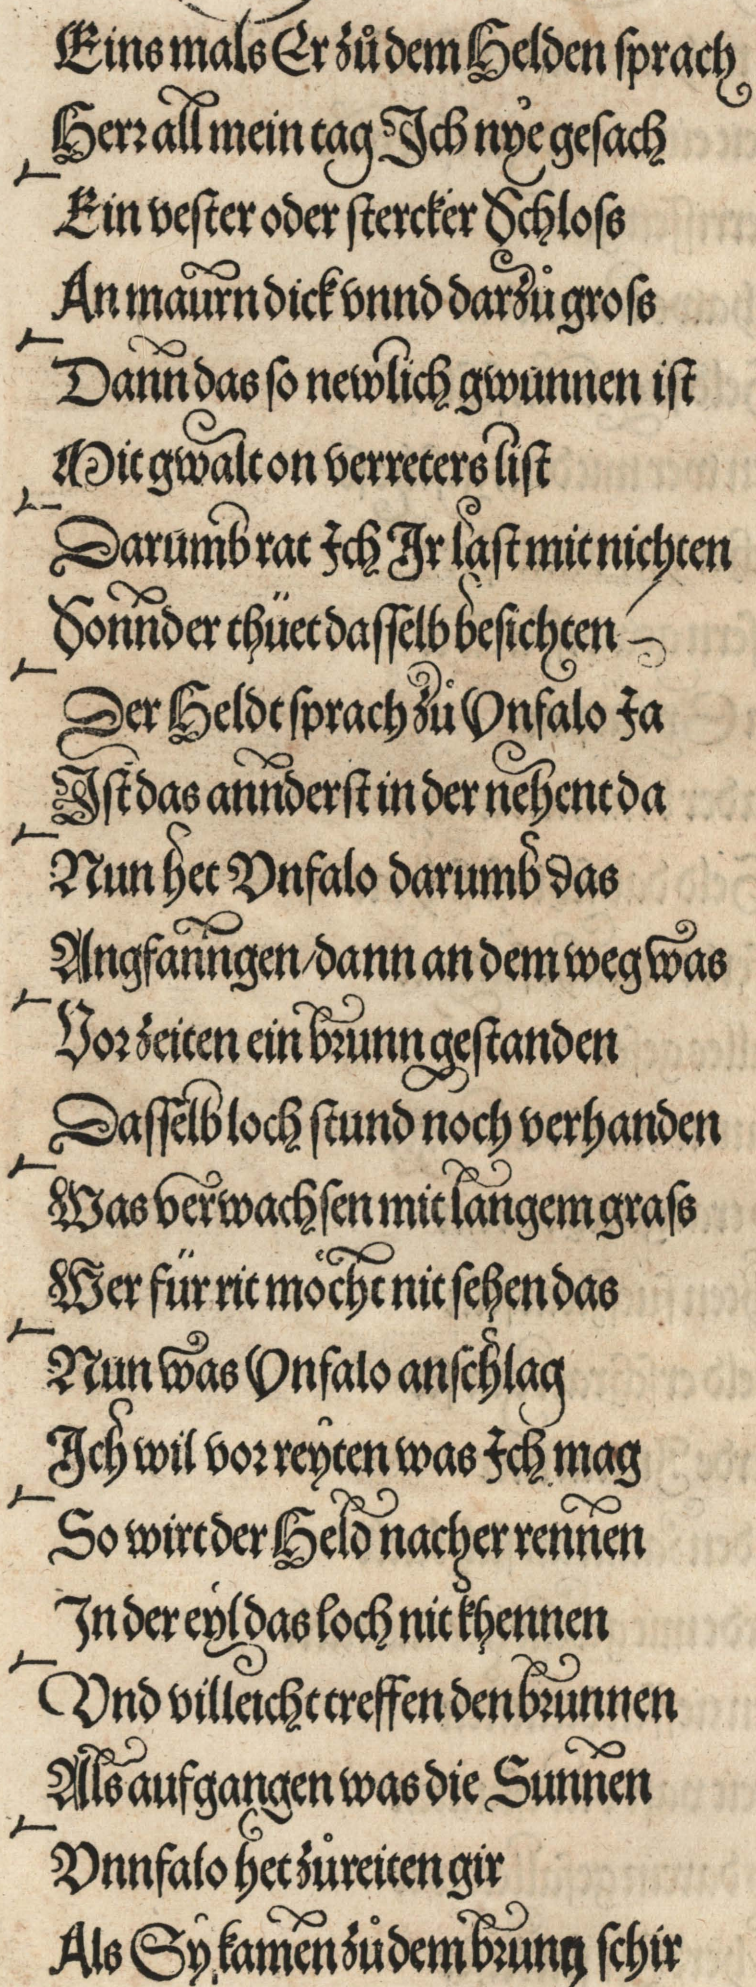 Eins mals Er zů dem Helden sprach
Herr all mein tag Ich nye gesach
Ein vester oder stercker Schloss
An maurn dick vnnd darzů gross
Dann das so newlich gwunnen ist
Mit gwalt on verreters list
Darumb rat Ich Ir last mit nichten
Sonnder thüet dasselb besichten
Der Heldt sprach zů Vnfalo Ja
Ist das annderst in der nehent da
Nun het Vnfalo darumb das
Angfanngen / dann an dem weg was
Vor zeiten ein brunn gestanden
Dasselb loch stund noch verhanden
Was verwachsen mit langem grass
Wer für rit möcht nit sehen das
Nun was Vnfalo anschlag
Ich wil vor reyten was Ich mag
So wirt der Held nacher rennen
In der eyl das loch nit khennen
Vnd villeicht treffen den brunnen
Als aufgangen was die Sunnen
Vnnfalo het zů reiten gir
Als Sy kamen zů dem brunn schir